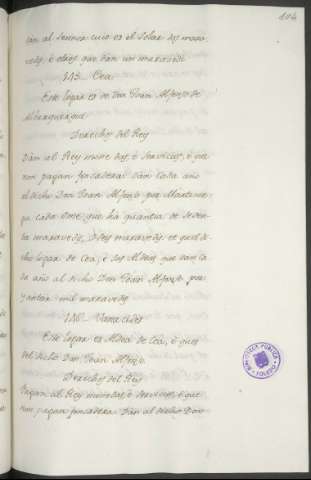 104
dan al Sennor cuio es el Solar dos mara-
vedis, è otros que dan un maravedi
115... Cea.
Este logar es de Don Joan Alfonso de
Alburquerque
Derechos del Rey
Dan al Rey monedas, è servicios, è que
non pagan fonsadera. Dan cada año
al dicho Don Joan Alfonso por Martinie-
ga cada Ome que ha quantia de seten-
ta maravedis, maravedis. et
cho logar de Cea, è sus Aldeas que dan ca-
da año al dicho Don Joan Alfonso por
yantar mil maravedis
116...
Este logar es Aldea de Cea, è que es
del dicho Don Joan Alfonso.
Derechos del Rey
Pagan al Rey monedas, è servicios, è que
non pagan fonsadera. Dan al dicho Don
BIBLIOTECA PUBLICA
TOLEDO